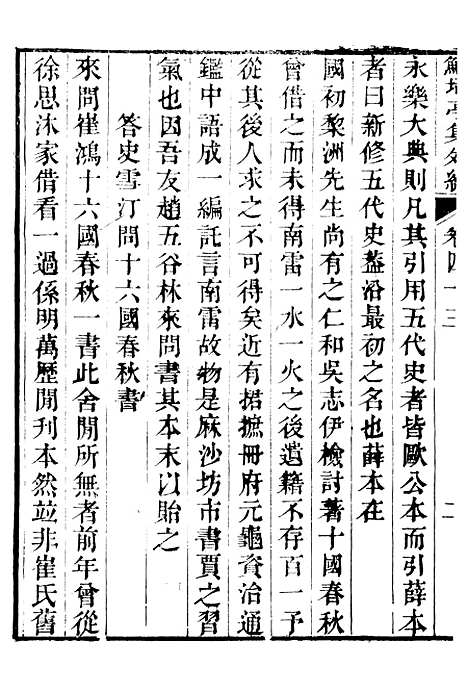 鮚埼亭集外編 卷四十三 二
永樂大典則凡其引用五代史者皆歐公本而引薛本
者曰新修五代史蓋沿最初之名也薛本在
國初黎洲先生尚有之仁和吳志伊檢討著十國春秋
曾借之而未得南雷一水一火之後遺籍不存百一予
從其後人求之不可得矣近有捃摭冊府元龜資治通
鑑中語成一編託言南雷故物是麻沙坊市書賈之習
氣也因吾友趙五谷林來問書其本末以貽之
答史雪汀問十六國春秋書
來問崔鴻十六國春秋一書此舍閒所無者前年曾從
徐思沐家借看一過係明萬歷閒刊本然並非崔氏舊